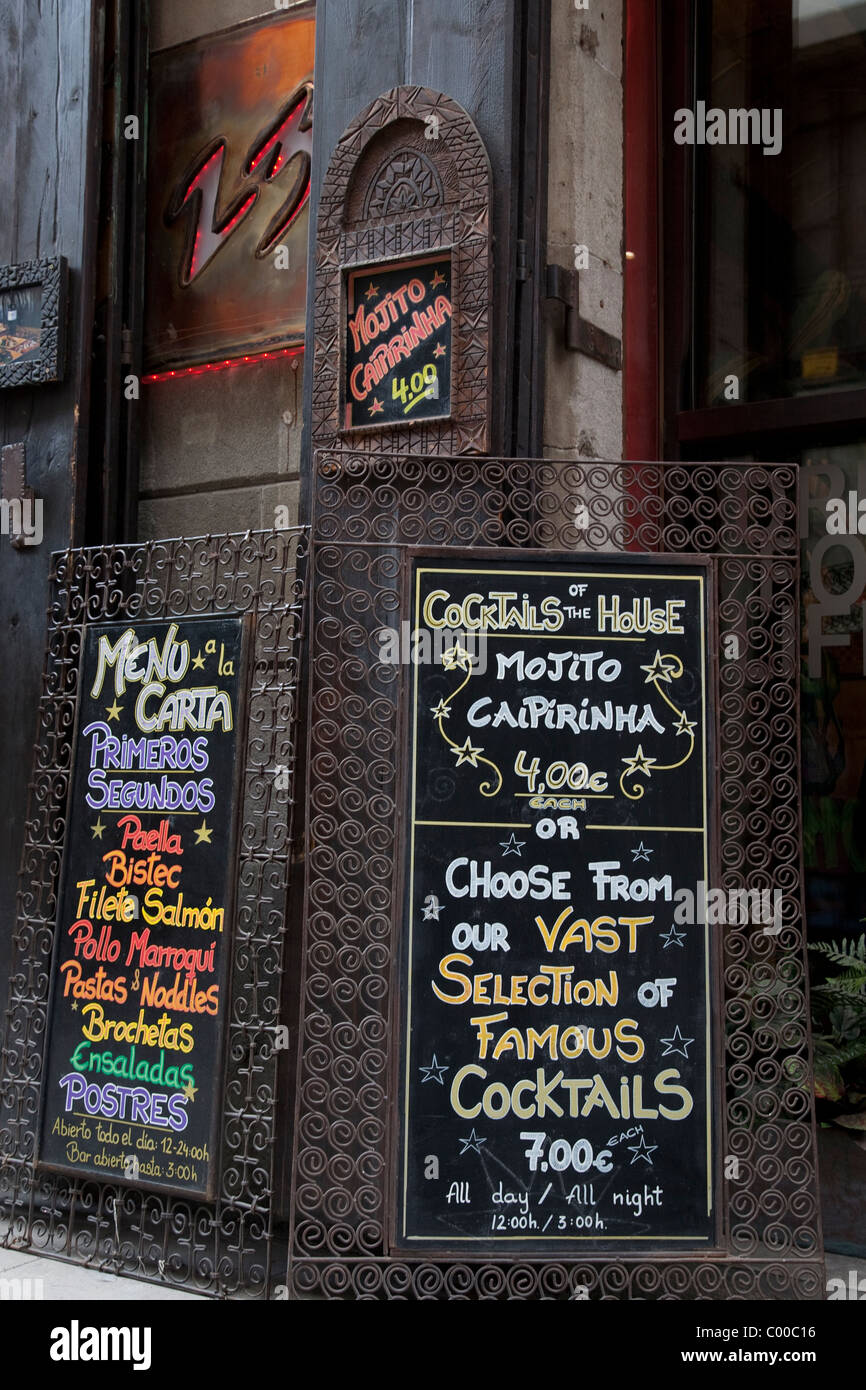 MOJITO
CAIPIRINHA
4.00
MENU a la
CARTA
PRIMEROS
SEGUNDOS
Paella
Bistec
Filete Salmón
Pollo Marroqui
Pastas & Noddles
Brochetas
Ensaladas
POSTRES
Abierto todo el dia: 12-24:00h
Bar abierto hasta: 3:00h
COCKTAILS OF THE HOUSE
MOJITO
CAIPIRINHA
4,00€
EACH
OR
CHOOSE FROM
OUR VAST
SELECTION OF
FAMOUS
COCKTAILS
7.00€ EACH
All day / All night
12:00h. / 3:00h.
alamy
Image ID: C00C16
www.alamy.com